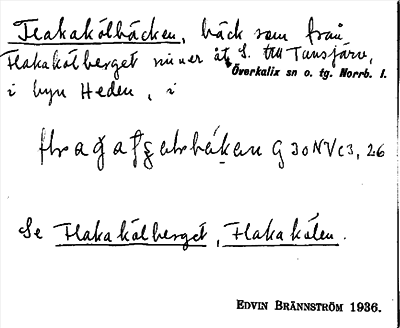 Flakakölbäcken, bäck som från
Flakakölberget rinner åt S. till Tansjärv,
i byn Heden, i Överkalix sn o. tg. Norrb. l.
G 30 NV c3, 26
Se Flakakölberget, Flakakölen.
EDVIN BRÄNNSTRÖM 1936.